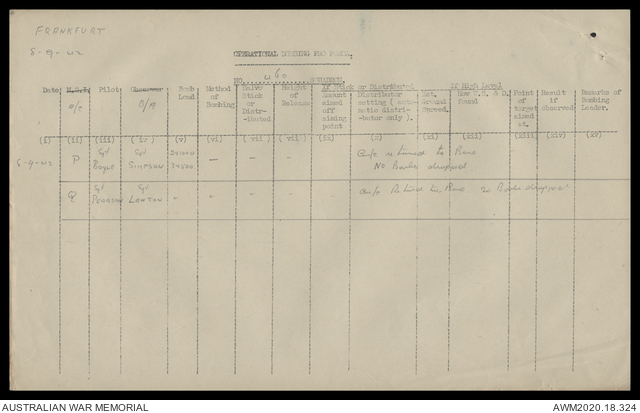 FRANKFURT
8-9-42
OPERATIONAL BOMBING
NO. 460 SQUADRON.
Date M.S.I. Pilot Observer Bomb Load Method of Bombing Salvo Stick or Distr-ibuted Height of Release If Stick or Distributed Amount aimed off aiming point Distributor setting (automatic distributor only). Ground Speed. If High Level How Found Point of target aimed at. Result if observed Remarks of Bombing Leader.
A/C B/A
(i) (ii) (iii) (iv) (v) (vi) (vii) (vii) (ix) (x) (xi) (xii) (xiii) (xiv) (xv)
8-9-42 P Sgt Boyle Sgt SIMPSON - - - A/c returned to Base
No Bombs dropped
Q Sgt PEARSON Sgt LAWTON " " - - A/c Returned to Base no Bombs dropped
AUSTRALIAN WAR MEMORIAL
AWM2020.18.324